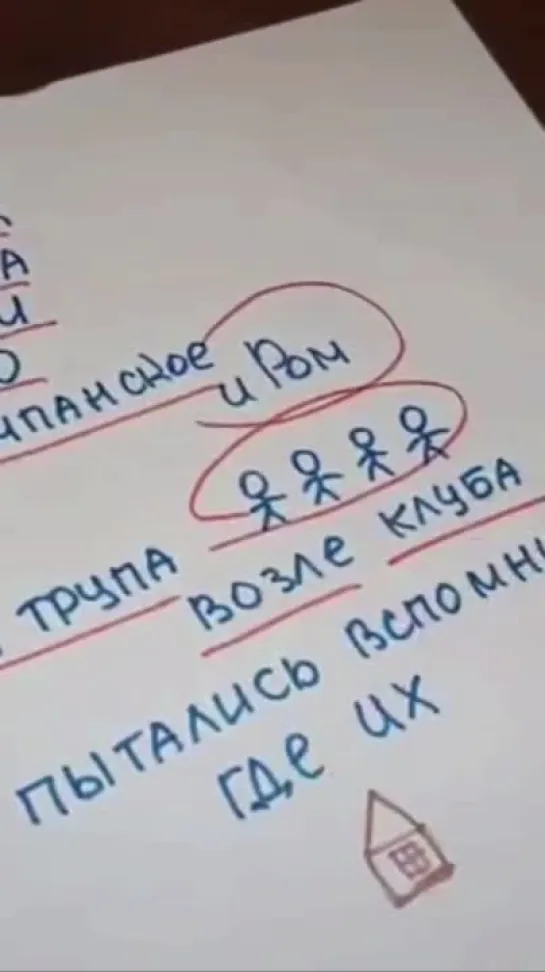 А
И
О
мпанское
и Ром
трупа
возле клуба
пытались вспомни
где их